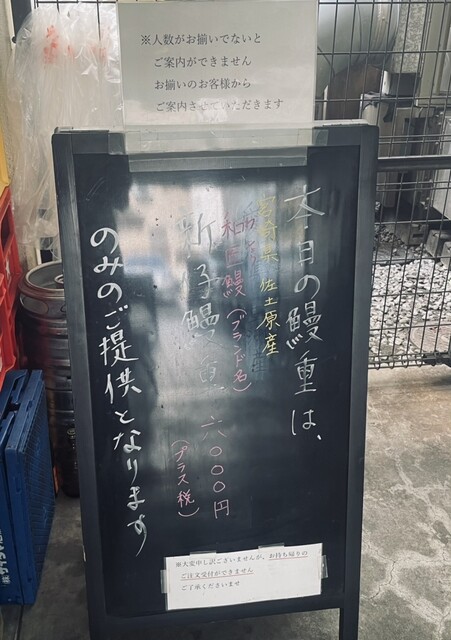 ※人数がお揃いでないと
ご案内ができません
お揃いのお客様から
ご案内させていただきます
本日の鰻重は、
宮崎県佐土原産
和匠鰻(ブランド名)
新仔鰻重 六〇〇〇円
(プラス税)
のみのご提供となります
※大変申し訳ございませんが、お持ち帰りの
ご注文受付ができません
ご了承くださいませ